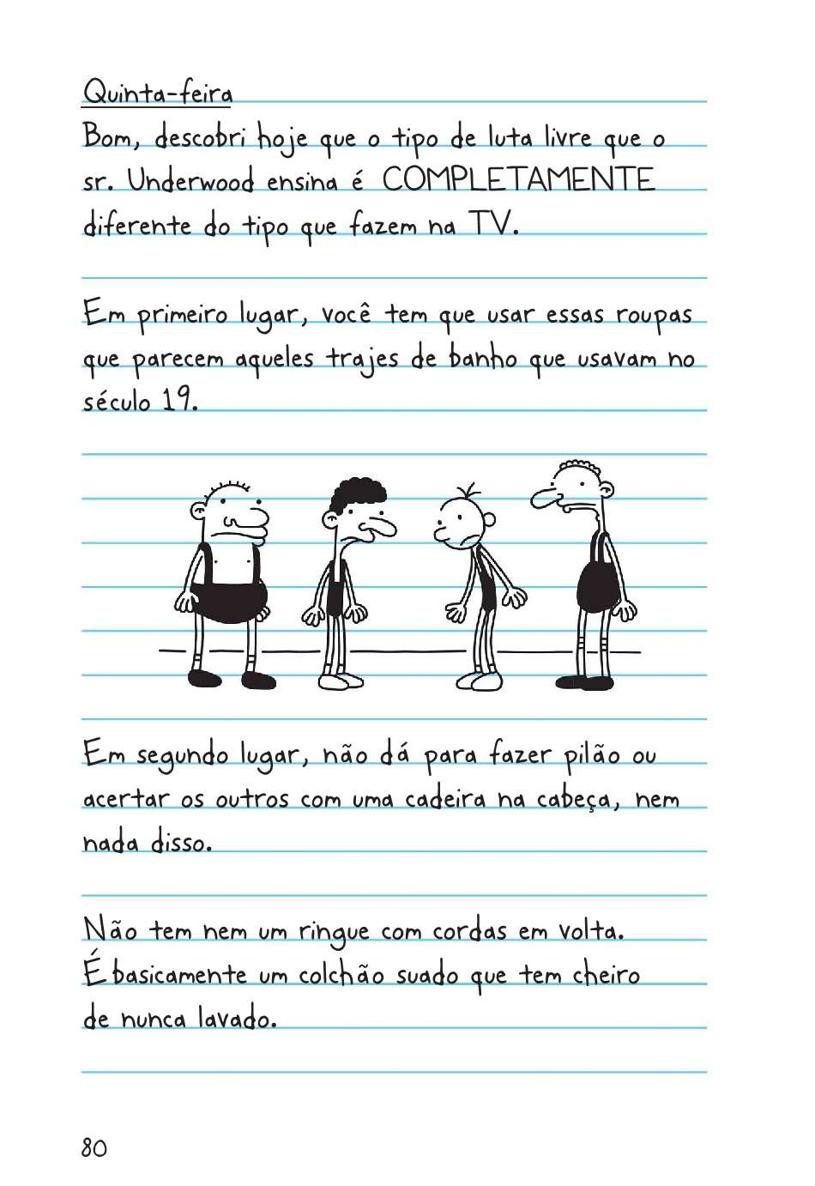 Quinta-feira
Bom, descobri hoje que o tipo de luta livre que o
sr. Underwood ensina é COMPLETAMENTE
diferente do tipo que fazem na TV.
Em primeiro lugar, você tem que usar essas roupas
que parecem aqueles trajes de banho que usavam no
século 19.
Em segundo lugar, não dá para fazer pilão ou
acertar os outros com uma cadeira na cabeça, nem
nada disso.
Não tem nem um ringue com cordas em volta.
É basicamente um colchão suado que tem cheiro
de nunca lavado.
80